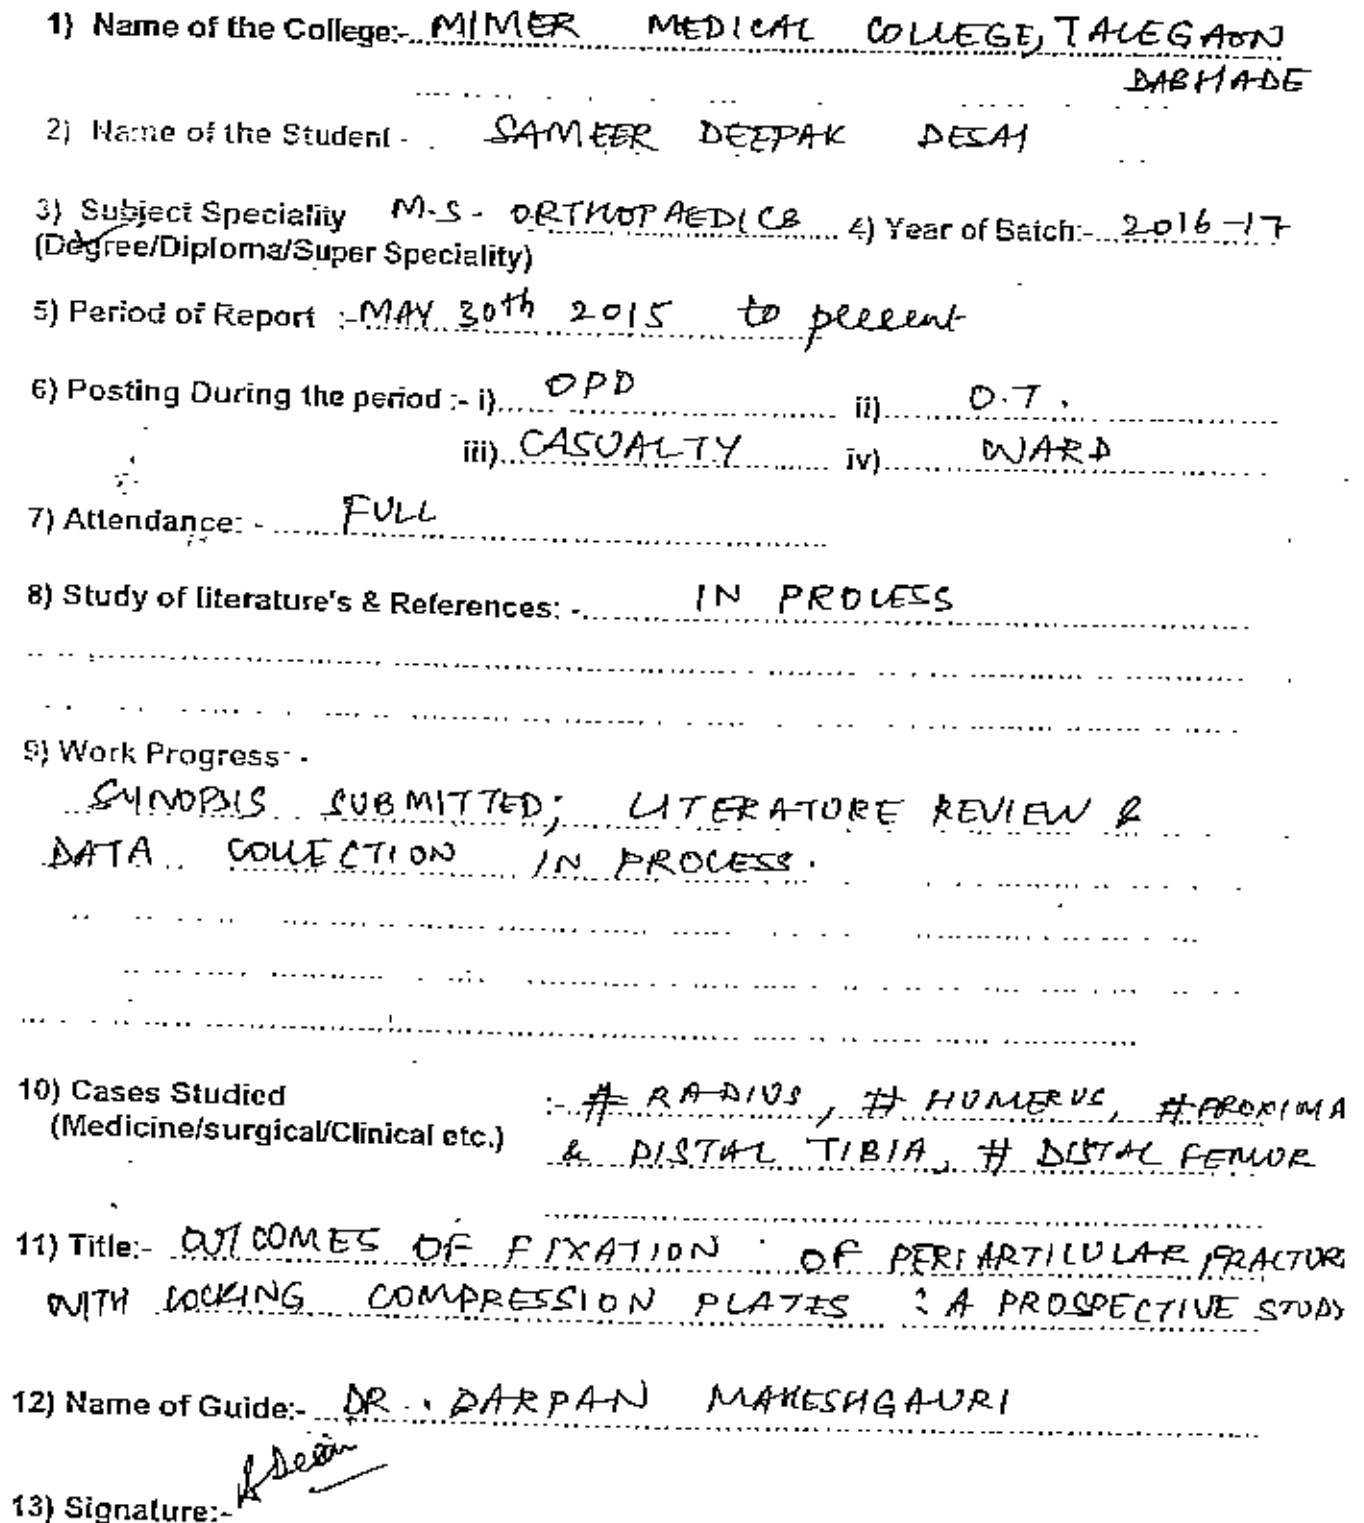 1) Name of the College:- MIMER MEDICAL COLLEGE, TALEGAON
DABHADE
2) Name of the Student - SAMEER DEEPAK DESAI
3) Subject Speciality M.S - ORTHOPAEDICS 4) Year of Batch:- 2016-17
(Degree/Diploma/Super Speciality)
5) Period of Report :- MAY 30th 2015 to present
6) Posting During the period :- i) OPD ii) O.T.
iii) CASUALTY iv) WARD
7) Attendance: - FULL
8) Study of literature's & References: - IN PROCESS
9) Work Progress: -
SYNOPSIS SUBMITTED; LITERATURE REVIEW &
DATA COLLECTION IN PROCESS.
10) Cases Studied :- # RADIUS, # HUMERUS, # PROXIMA
(Medicine/surgical/Clinical etc.) & DISTAL TIBIA, # DISTAL FEMUR
11) Title:- OUTCOMES OF FIXATION OF PERIARTICULAR FRACTUR
WITH LOCKING COMPRESSION PLATES : A PROSPECTIVE STUDY
12) Name of Guide:- DR. DARPAN MAHESHGAURI
13) Signature:- SDesai